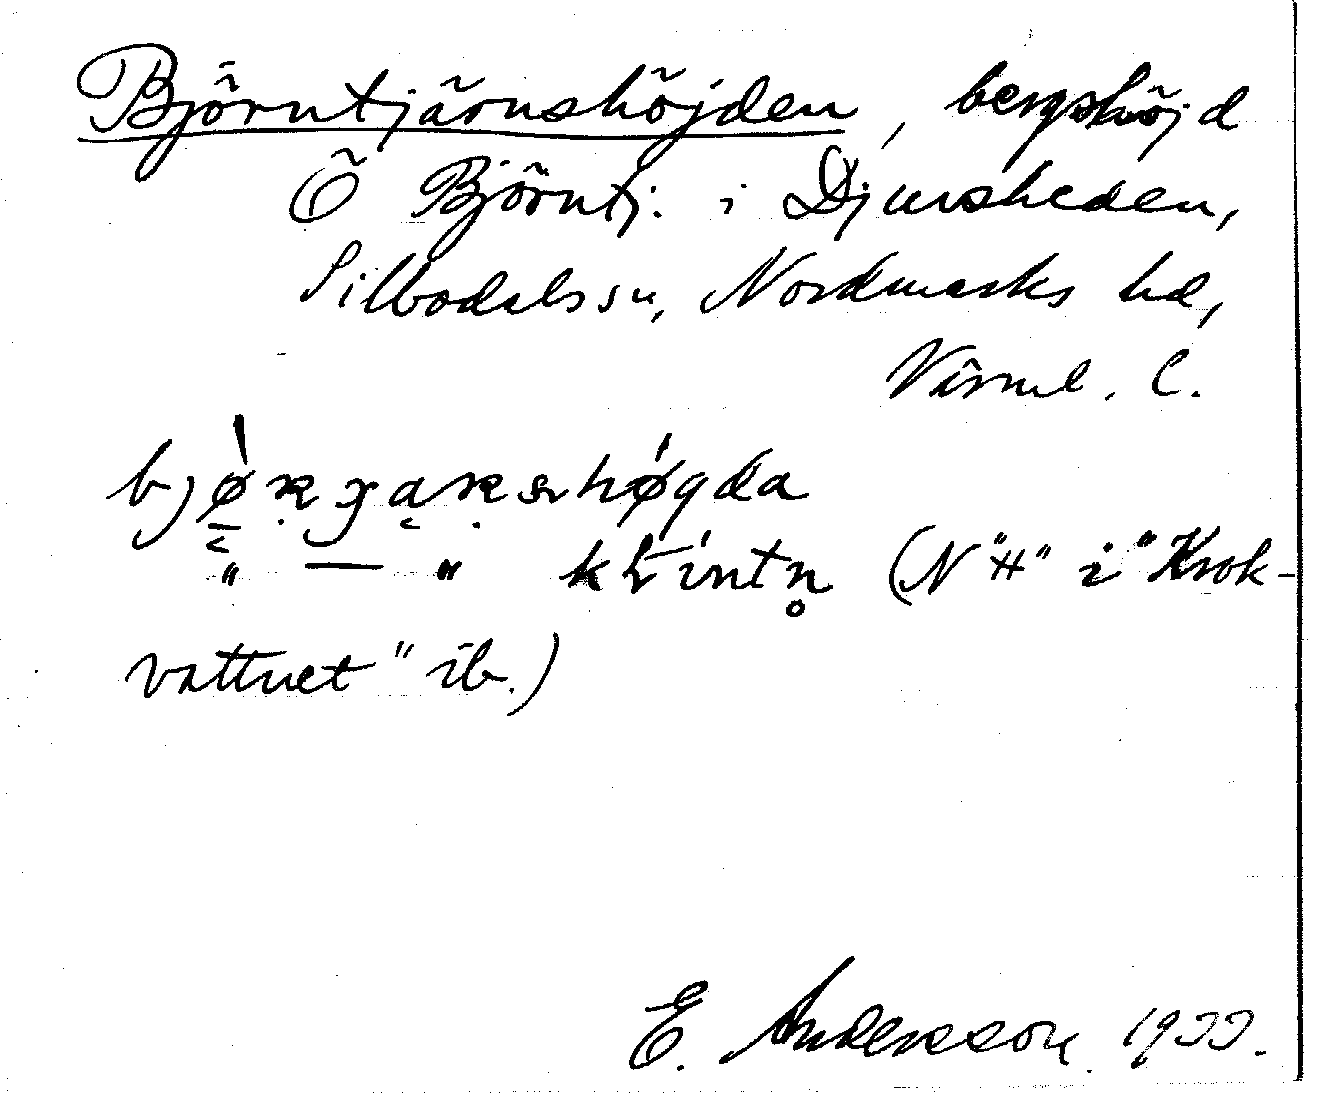 Björntjärnshöjden, bergshöjd
Ö Björntj. i Djursheden,
Silbodals sn, Nordmarks hd,
Värml. l.
bjøʀɡaʀs høgda
" — " kl̥intn̥ (N "H" i "Krok-
vattnet" ib.)
E. Andersson 1933.